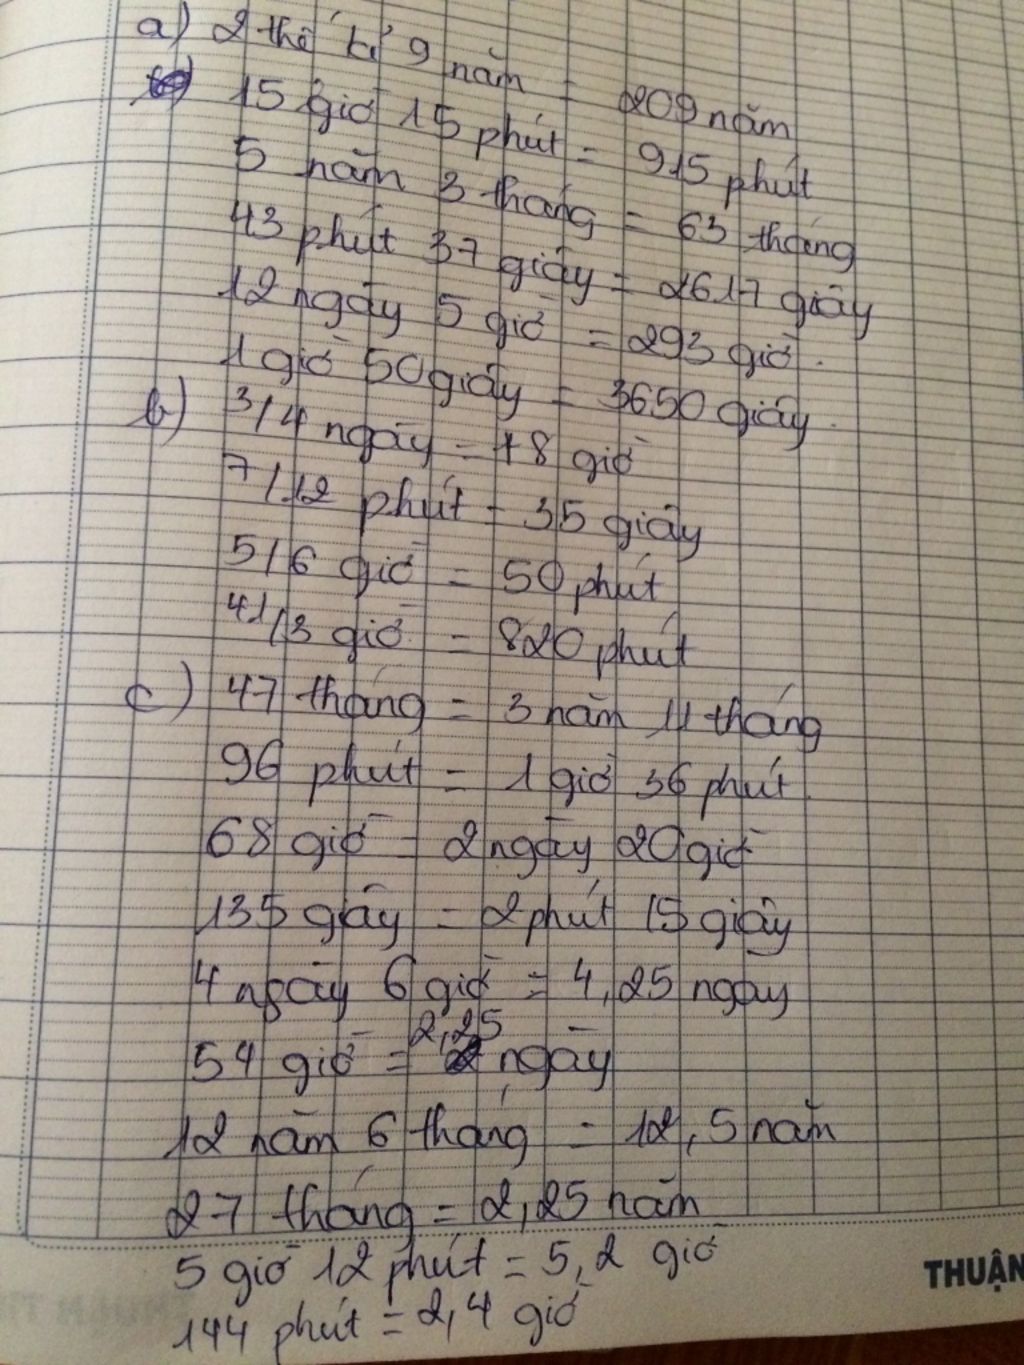 a) 2 thế kỉ 9 năm = 209 năm
15 giờ 15 phút = 915 phút
5 năm 3 tháng = 63 tháng
43 phút 37 giây = 2617 giây
12 ngày 5 giờ = 293 giờ.
1 giờ 50 giây = 3650 giây.
b) 3/4 ngày = 18 giờ
7/12 phút = 35 giây
5/6 giờ = 50 phút
41/3 giờ = 820 phút
c) 47 tháng = 3 năm 11 tháng
96 phút = 1 giờ 36 phút.
68 giờ = 2 ngày 20 giờ
135 giây = 2 phút 15 giây
4 ngày 6 giờ = 4,25 ngày
54 giờ = 2,25 ngày
12 năm 6 tháng = 12,5 năm
27 tháng = 2,25 năm
5 giờ 12 phút = 5,2 giờ
THUẬN
144 phút = 2,4 giờ